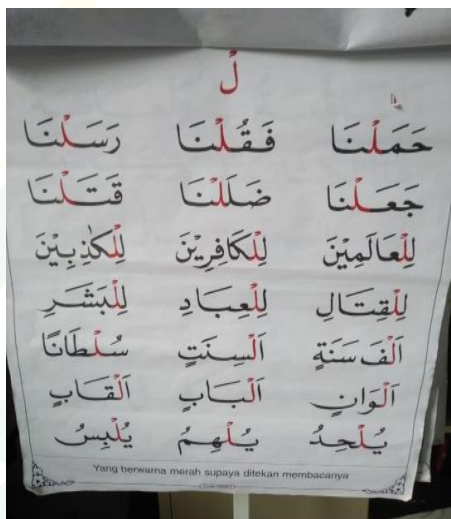 لْ
حَمَلْنَا فَقُلْنَا رَسَلْنَا
جَعَلْنَا ضَلَلْنَا قَتَلْنَا
لِلْعَالَمِيْنَ لِلْكَافِرِيْنَ لِلْكٰذِبِيْنَ
لِلْقِتَالِ لِلْعِبَادِ لِلْبَشَرِ
اَلْفَ سَنَةٍ اَلْسِنَتٍ سُلْطَانًا
اَلْوَانٍ اَلْبَابٍ اَلْقَابٍ
يُلْحِدُ يُلْهِمُ يُلْبِسُ
Yang berwarna merah supaya ditekan membacanya